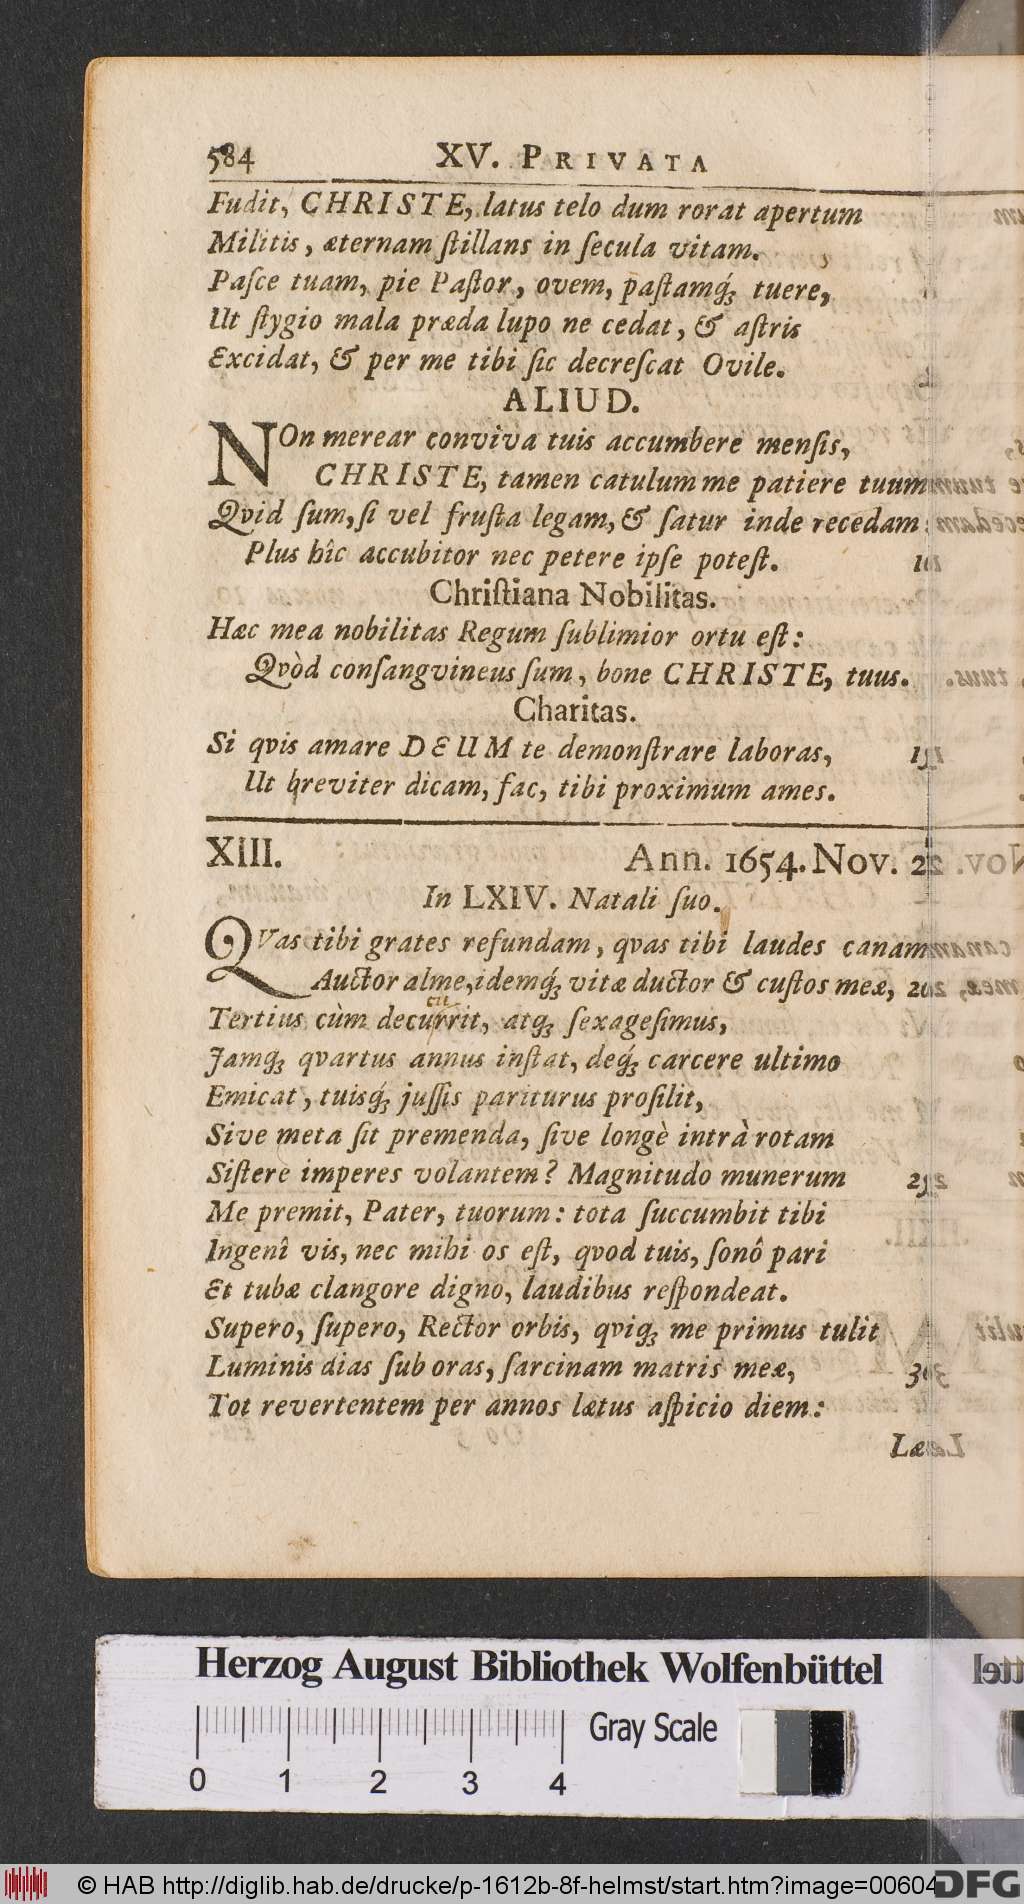 584 XV. PRIVATA
Fudit, CHRISTE, latus telo dum rorat apertum
Militis, æternam ſtillans in ſecula vitam.
Paſce tuam, pie Paſtor, ovem, paſtamq́; tuere,
Ut ſtygio mala præda lupo ne cedat, & aſtris
Excidat, & per me tibi ſic decreſcat Ovile.
ALIUD.
NOn merear conviva tuis accumbere menſis,
CHRISTE, tamen catulum me patiere tuum
Qvid ſum, ſi vel fruſta legam, & ſatur inde recedam:
Plus hîc accubitor nec petere ipſe poteſt. 10
Chriſtiana Nobilitas.
Hæc mea nobilitas Regum ſublimior ortu eſt:
Qvòd conſangvineus ſum, bone CHRISTE, tuus.
Charitas.
Si qvis amare DEUM te demonſtrare laboras, 15
Ut breviter dicam, fac, tibi proximum ames.
XIII. Ann. 1654. Nov. 22
In LXIV. Natali ſuo.
QVas tibi grates refundam, qvas tibi laudes canam
Auctor alme, idemq́; vitæ ductor & cuſtos meæ, 20
cu
Tertius cùm decurrit, atq; ſexageſimus,
Jamq́; qvartus annus inſtat, deq́; carcere ultimo
Emicat, tuisq́; juſſis pariturus proſilit,
Sive meta ſit premenda, ſive longè intrà rotam
Siſtere imperes volantem? Magnitudo munerum 25
Me premit, Pater, tuorum: tota ſuccumbit tibi
Ingenî vis, nec mihi os eſt, qvod tuis, ſonô pari
Et tubæ clangore digno, laudibus reſpondeat.
Supero, ſupero, Rector orbis, qviq; me primus tulit
Luminis dias ſub oras, ſarcinam matris meæ, 30
Tot revertentem per annos lætus aſpicio diem:
Læ
Herzog August Bibliothek Wolfenbüttel
Gray Scale
0 1 2 3 4
© HAB http://diglib.hab.de/drucke/p-1612b-8f-helmst/start.htm?image=00604
DFG